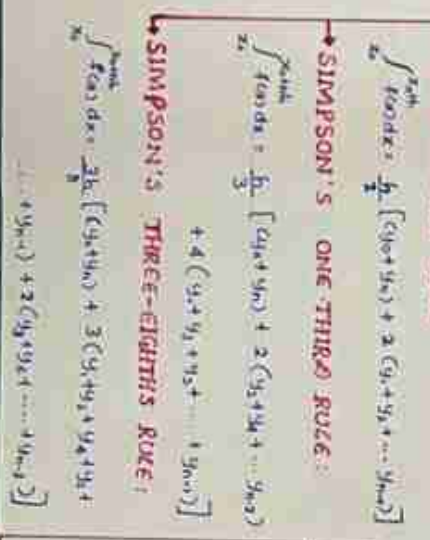 ∫_{x₀}^{x₀+nh} f(x) dx = h/2 [(y₀+yₙ) + 2(y₁+y₂+...yₙ₋₁)]
→ SIMPSON'S ONE-THIRD RULE:
∫_{x₀}^{x₀+nh} f(x) dx = h/3 [(y₀+yₙ) + 2(y₂+y₄+...yₙ₋₂)
+ 4(y₁+y₃+y₅+...+yₙ₋₁)]
→ SIMPSON'S THREE-EIGHTHS RULE:
∫_{x₀}^{x₀+nh} f(x) dx = 3h/8 [(y₀+yₙ) + 3(y₁+y₂+y₄+y₅+
....+yₙ₋₁) + 2(y₃+y₆+.....+yₙ₋₃)]